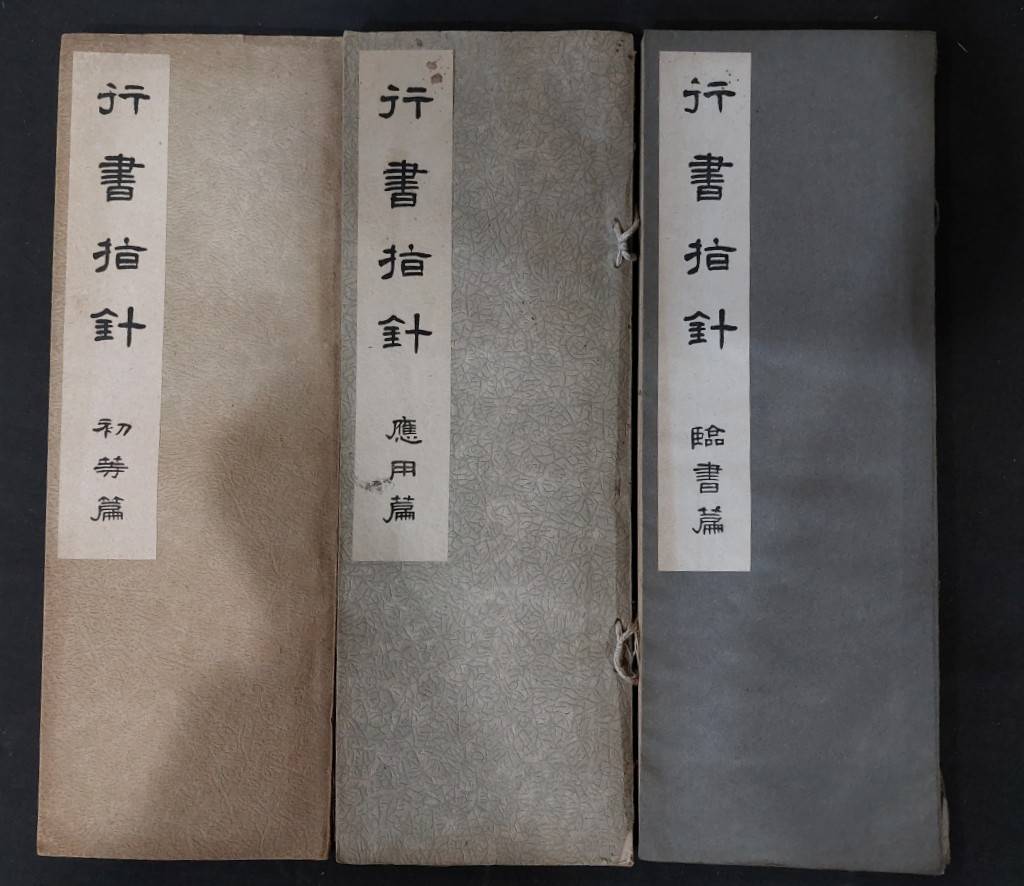 行書指針 初等篇
行書指針 應用篇
行書指針 臨書篇